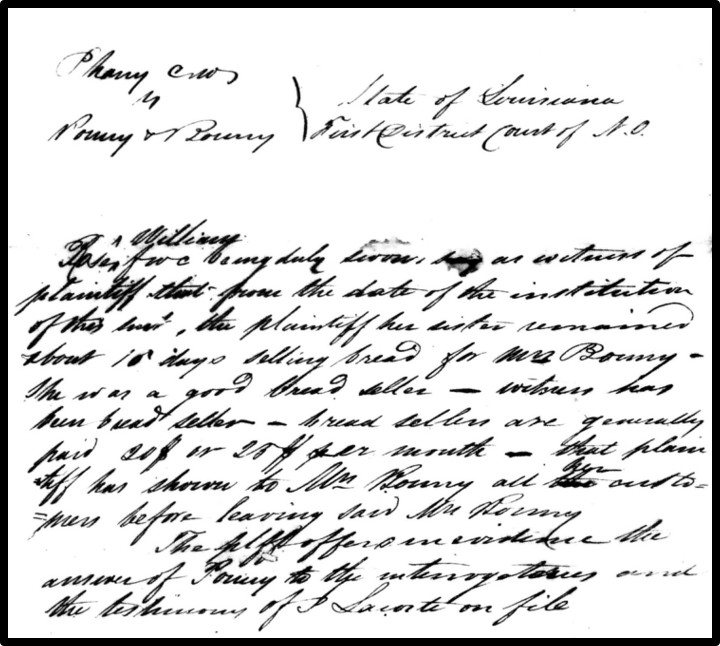 Phany cwo
vs
Ponny & Bonny
State of Louisiana
First District Court of N.O.
William
Rose fwc being duly sworn, as witness of
plaintiff that from the date of the institution
of this suit, the plaintiff her sister remained
about 15 days selling bread for Mrs Bonny –
She was a good bread seller – witness has
been bread seller – bread sellers are generally
paid 20$ or 25$ per month – that plain
tiff has shown to Mrs Bonny all her custo=
=mers before leaving said Mrs Bonny
The plff offers in evidence the
answer of Ponny to the interrogatories and
the testimony of J Lacoste on file